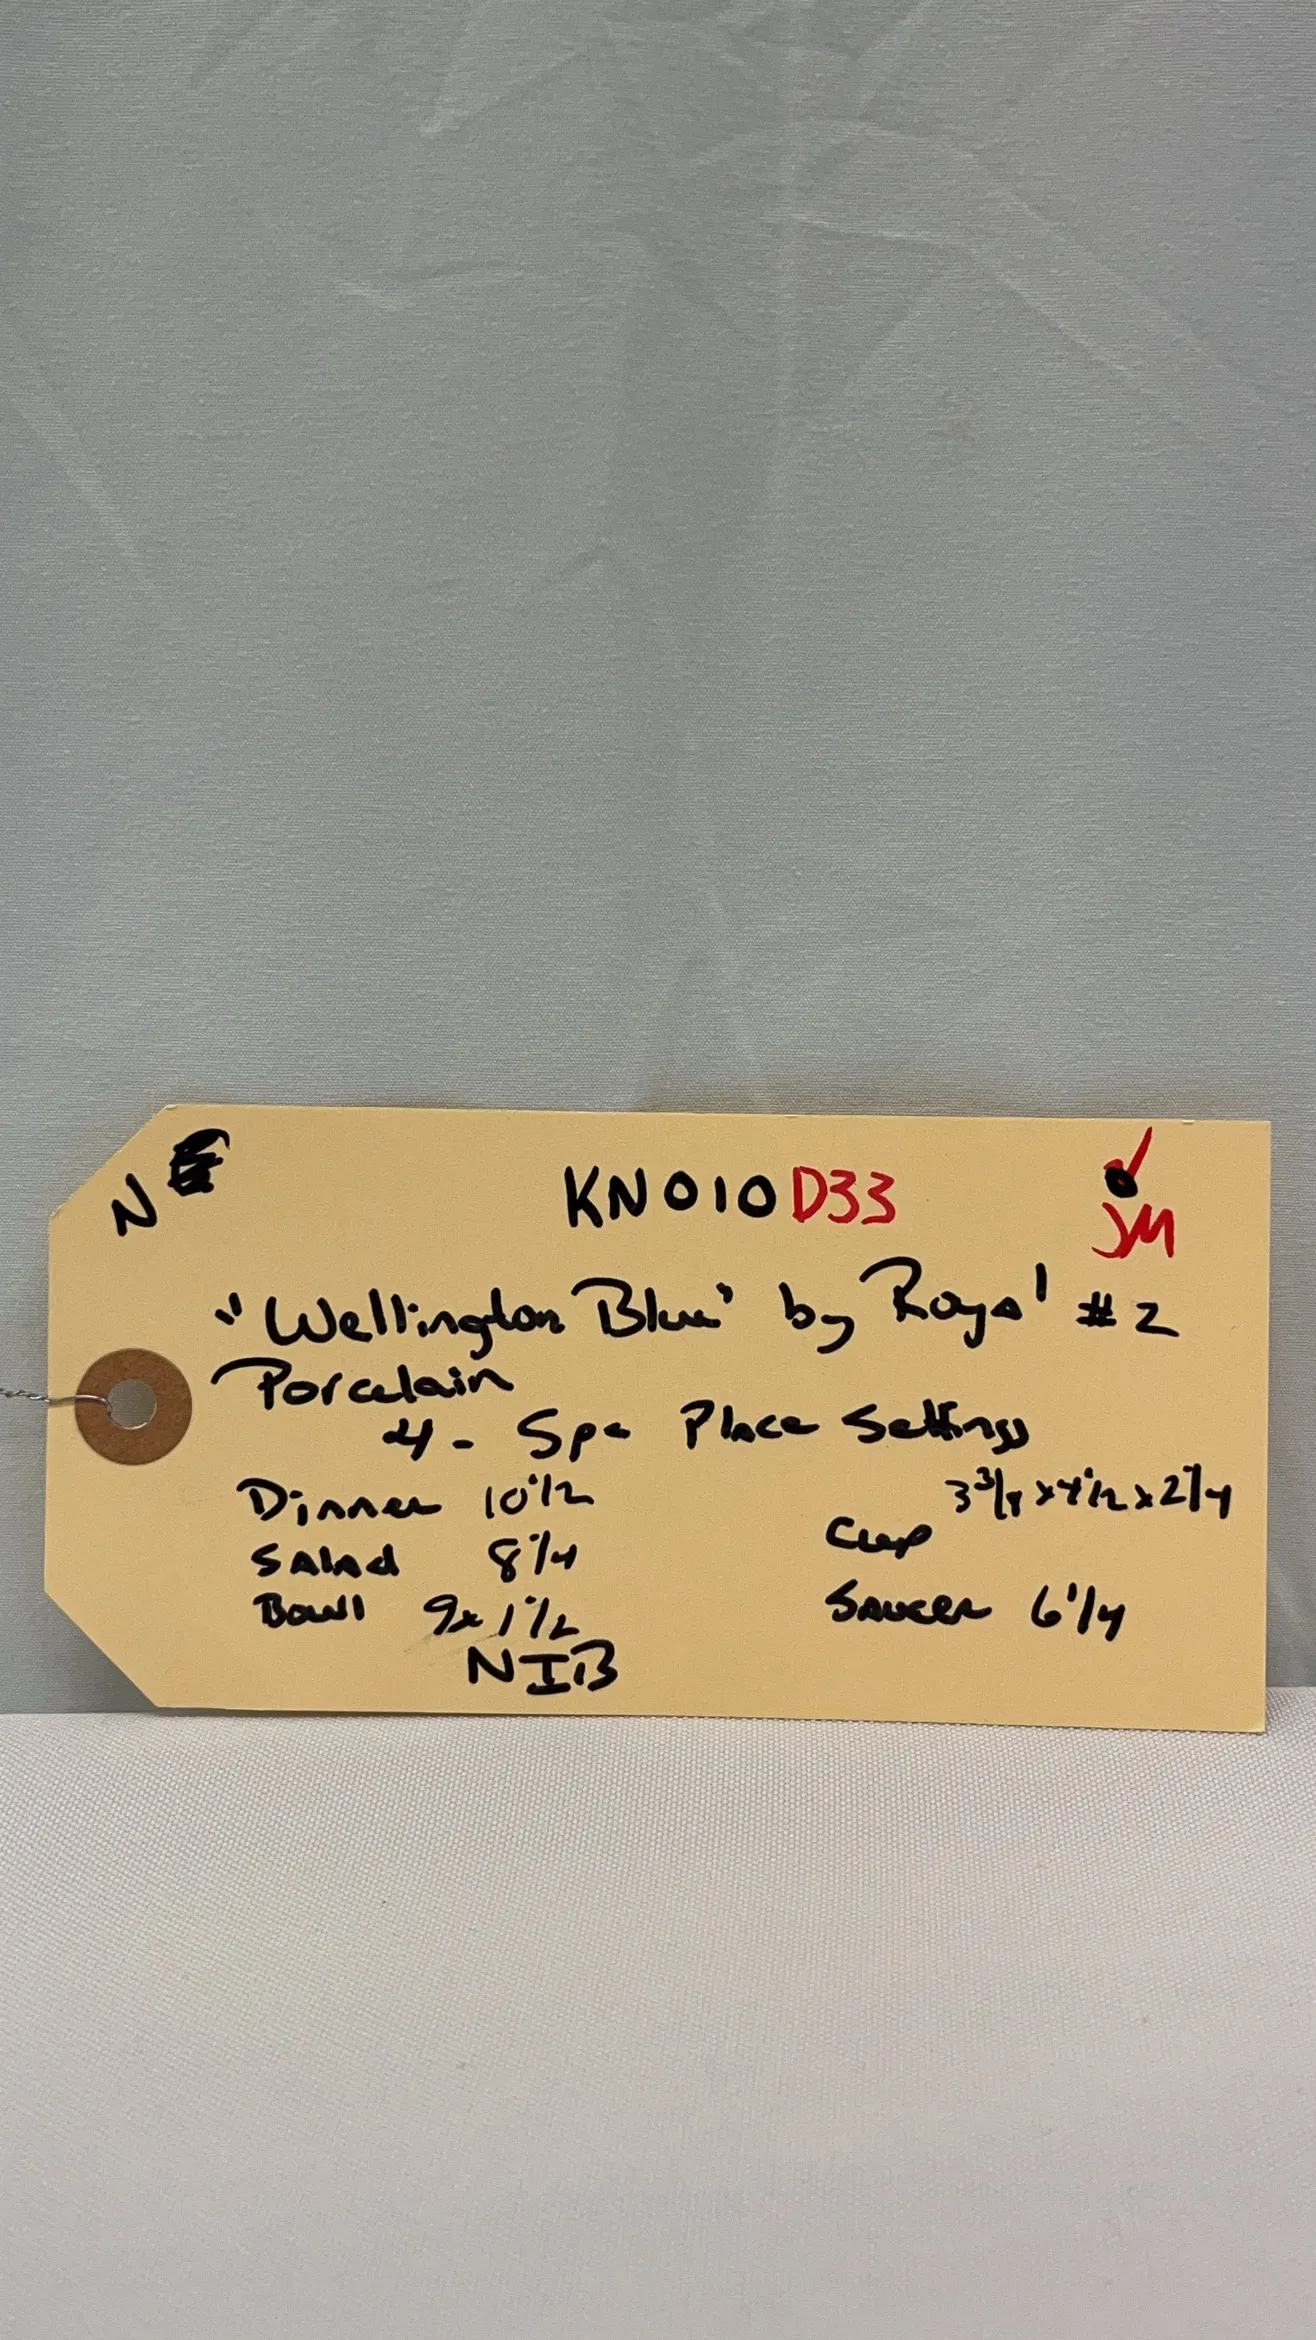 N
KN010D33
JM
"Wellington Blue" by Royal #2
Porcelain
4 - 5pc Place Settings
Dinner 10 1/2
Salad 8 1/4
Bowl 9x 1 1/2
NIB
3 3/4 x 4 1/2 x 2 1/4
Cup
Saucer 6 1/4